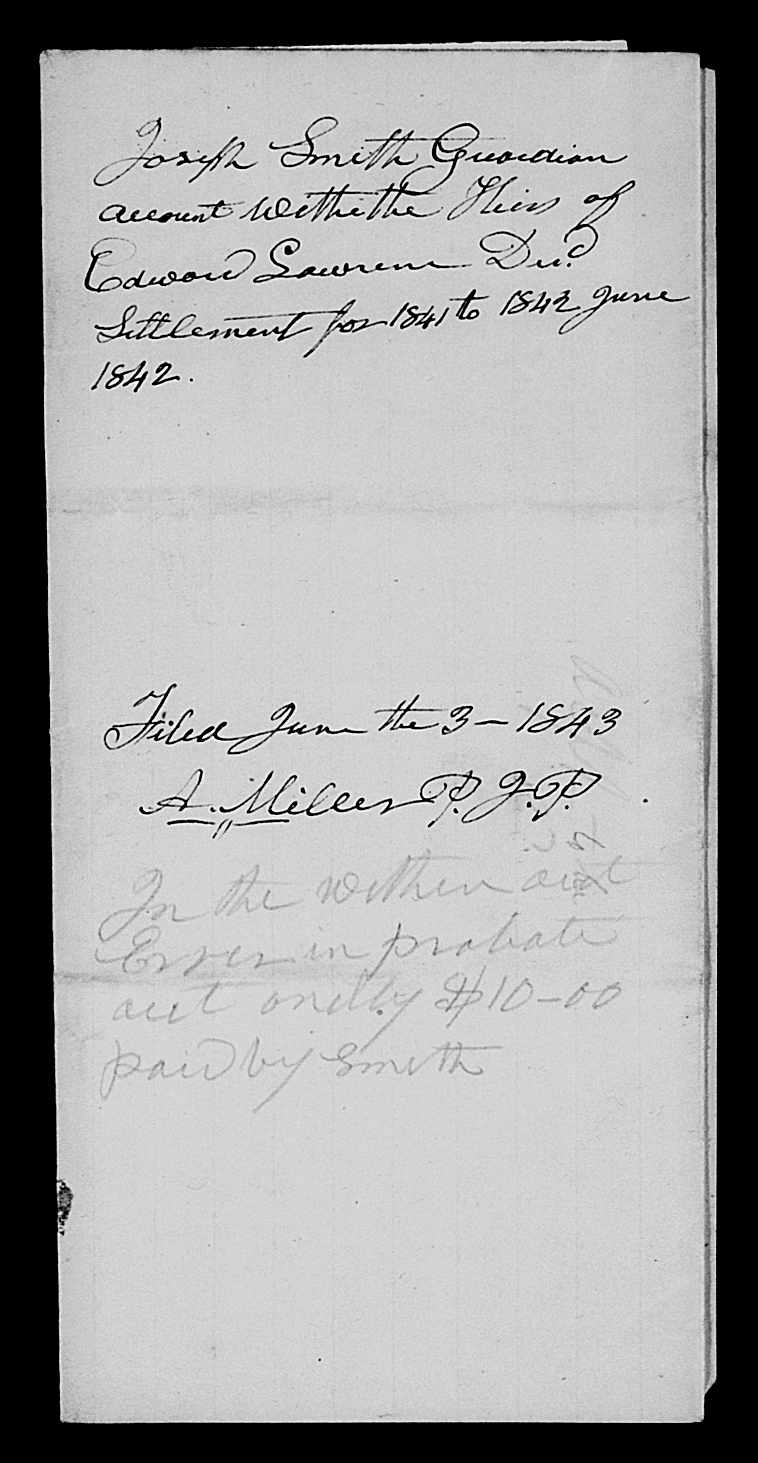 Joseph Smith Guardian
account With the Heirs of
Edward Lawrence Decd.
Settlement for 1841 to 1842 June
1842.
Filed June the 3 – 1843
A. Miller P. J. P.
In the Within acct
Error in probate
acct ondly $10–00
paid by Smith